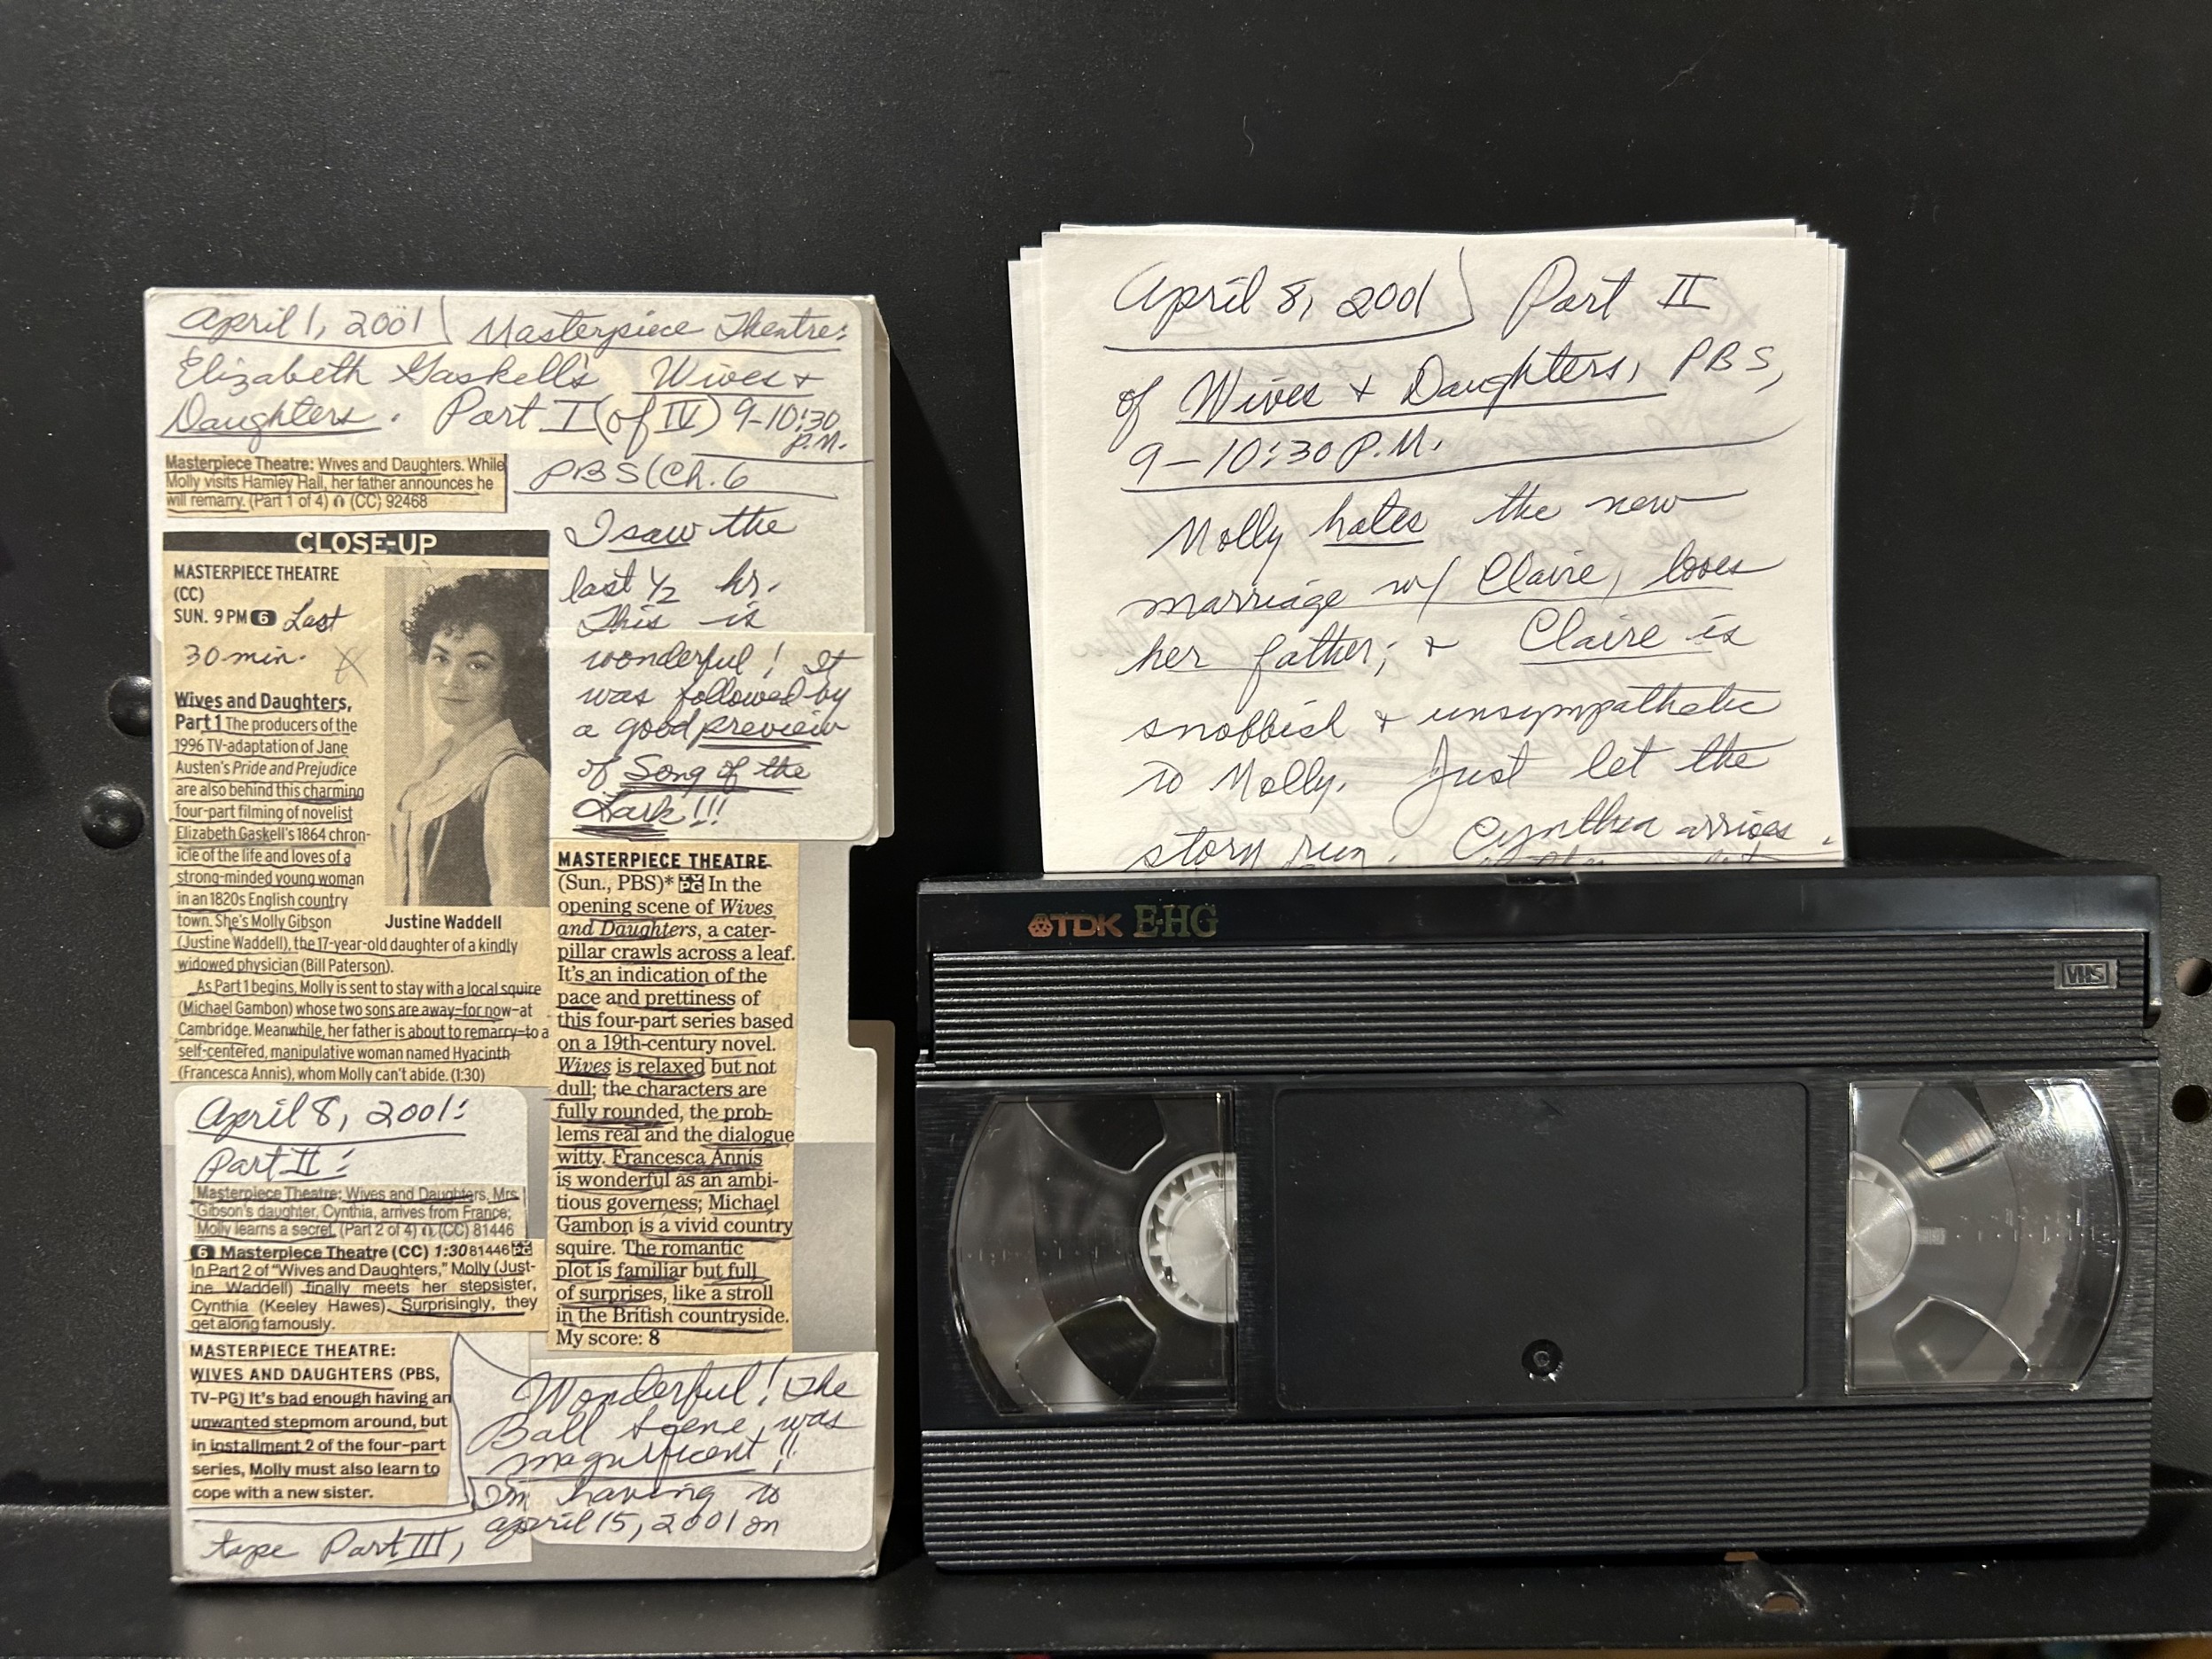 April 1, 2001 Masterpiece Theatre:
Elizabeth Gaskell's Wives +
Daughters. Part I (of IV) 9-10:30
P.M.
PBS (Ch. 6
Masterpiece Theatre: Wives and Daughters. While
Molly visits Hamley Hall, her father announces he
will remarry. (Part 1 of 4) (CC) 92468
I saw the
last 1/2 hr.
This is
wonderful! It
was followed by
a good preview
of Song of the
Lark!!!
CLOSE-UP
MASTERPIECE THEATRE
(CC)
SUN. 9 PM 6 Last
30 min.
Wives and Daughters,
Part 1 The producers of the
1996 TV-adaptation of Jane
Austen's Pride and Prejudice
are also behind this charming
four-part filming of novelist
Elizabeth Gaskell's 1864 chron-
icle of the life and loves of a
strong-minded young woman
in an 1820s English country
town. She's Molly Gibson
(Justine Waddell), the 17-year-old daughter of a kindly
widowed physician (Bill Paterson).
As Part 1 begins, Molly is sent to stay with a local squire
(Michael Gambon) whose two sons are away—for now—at
Cambridge. Meanwhile, her father is about to remarry—to a
self-centered, manipulative woman named Hyacinth
(Francesca Annis), whom Molly can't abide. (1:30)
Justine Waddell
MASTERPIECE THEATRE
(Sun., PBS)* TV PG In the
opening scene of Wives
and Daughters, a cater-
pillar crawls across a leaf.
It's an indication of the
pace and prettiness of
this four-part series based
on a 19th-century novel.
Wives is relaxed but not
dull; the characters are
fully rounded, the prob-
lems real and the dialogue
witty. Francesca Annis
is wonderful as an ambi-
tious governess; Michael
Gambon is a vivid country
squire. The romantic
plot is familiar but full
of surprises, like a stroll
in the British countryside.
My score: 8
April 8, 2001:
Part II:
Masterpiece Theatre: Wives and Daughters, Mrs.
Gibson's daughter, Cynthia, arrives from France;
Molly learns a secret. (Part 2 of 4) (CC) 81446
6 Masterpiece Theatre (CC) 1:30 81446 TV PG
In Part 2 of "Wives and Daughters," Molly (Just-
ine Waddell) finally meets her stepsister,
Cynthia (Keeley Hawes). Surprisingly, they
get along famously.
MASTERPIECE THEATRE:
WIVES AND DAUGHTERS (PBS,
TV-PG) It's bad enough having an
unwanted stepmom around, but
in installment 2 of the four-part
series, Molly must also learn to
cope with a new sister.
Wonderful! The
Ball scene was
magnificent!!
I'm having to
tape Part III, April 15, 2001 on
April 8, 2001 Part II
of Wives + Daughters, PBS,
9-10:30 P.M.
Molly hates the new
marriage w/ Claire, loves
her father; + Claire is
snobbish + unsympathetic
to Molly. Just let the
story run. Cynthia arrives
TDK E-HG
VHS